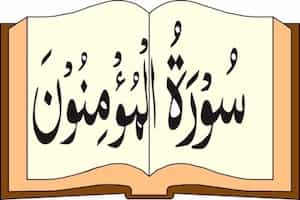 سُوْرَةُ الْمُؤْمِنُوْنَ